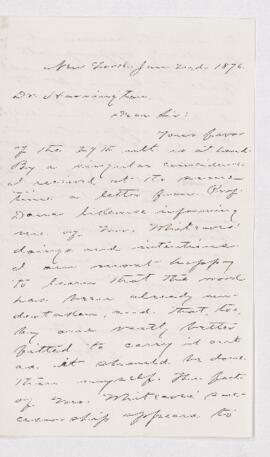 New York, Jan 2nd. 1876.
Dr. Harrington,
Dear Sir:
Yours favor
of the 29th ult. is at hand.
By a singular coincidence
I received at the same
time a letter from Prof.
Dana likewise informing
me of Mr. Whiteaves'
doings and intentions.
I am most happy
to learn that the work
has been already un-
dertaken, and that, too,
by one vastly better
fitted to carry it out
as it should be done
than myself. The fact
of Mr. Whiteaves'
appeared to